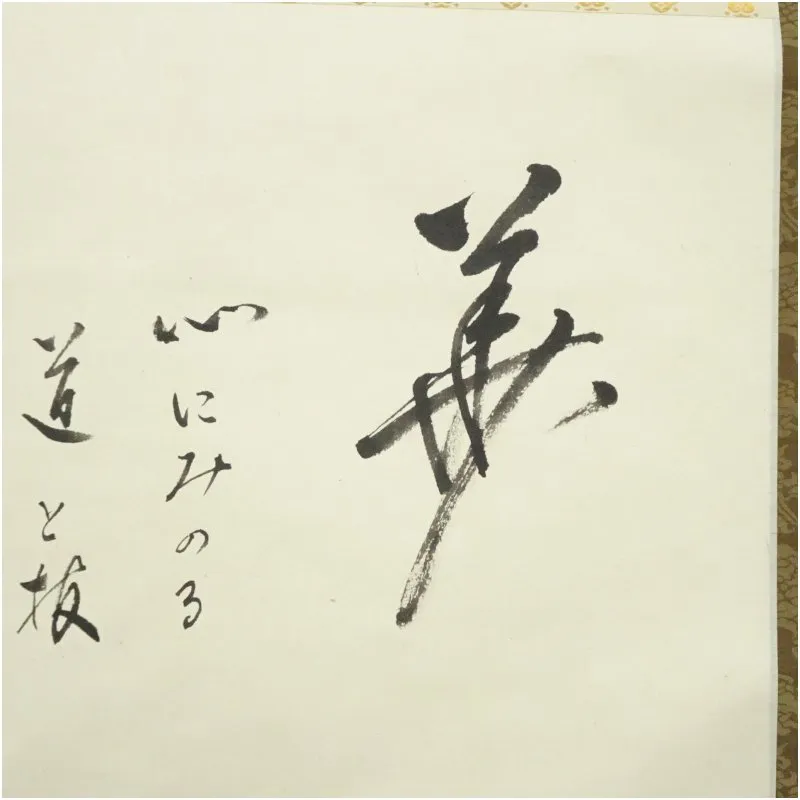 義
心にみのる
道と技